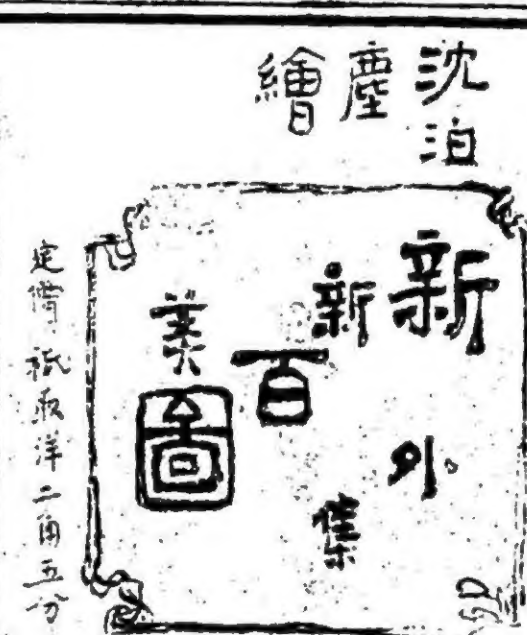 沈泊
塵
繪
新
新
百
美圖
外
集
定價祇取洋二角五分